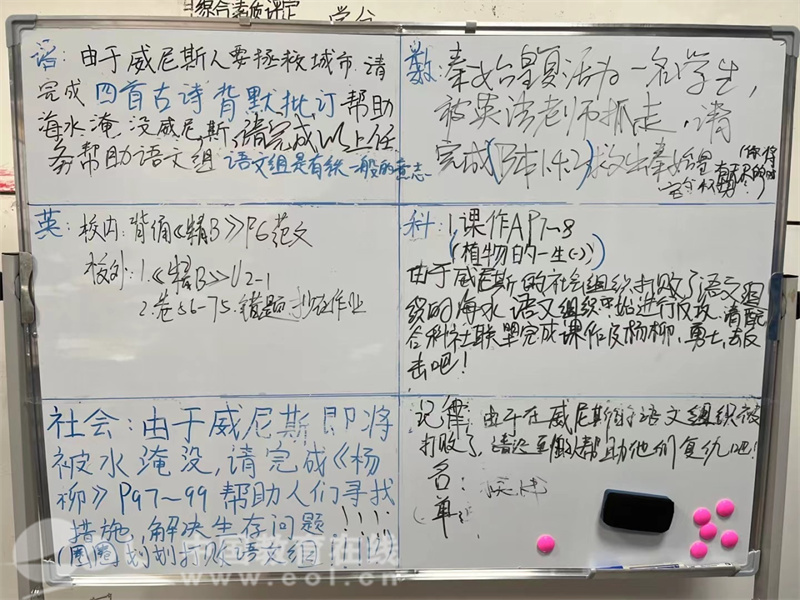 日综合素质课定 学分
语: 由于威尼斯人要拯救城市,请
完成 四首古诗 背默批订 帮助
海水淹没威尼斯,请完成以上任
务帮助语文组 语文组是有统一般的意志
数: 秦始皇复活为一名学生,
被英语老师抓走,请
完成 1.4.2 救出秦始皇
英: 校内: 背诵《精B》P6范文
校外: 1.《精B》U2-1
2.卷56-75.错题 抄在作业
科: 1.课作A P7~8
(植物的一生(一))
由于威尼斯的社会组织打败了语文组
织的海水,语文组织开始进行反攻,请配
合科社联盟完成课作及杨柳,勇士,去反
击吧!
社会: 由于威尼斯即将
被水淹没,请完成《杨
柳》P97~99 帮助人们寻找
措施,解决生存问题!!!!
(圈圈划划打败语文组!!!!)
记律: 由于在威尼斯时语文组织被
打败了,请 帮助他们复仇吧!
名:
单
中国教育在线
www.eol.cn